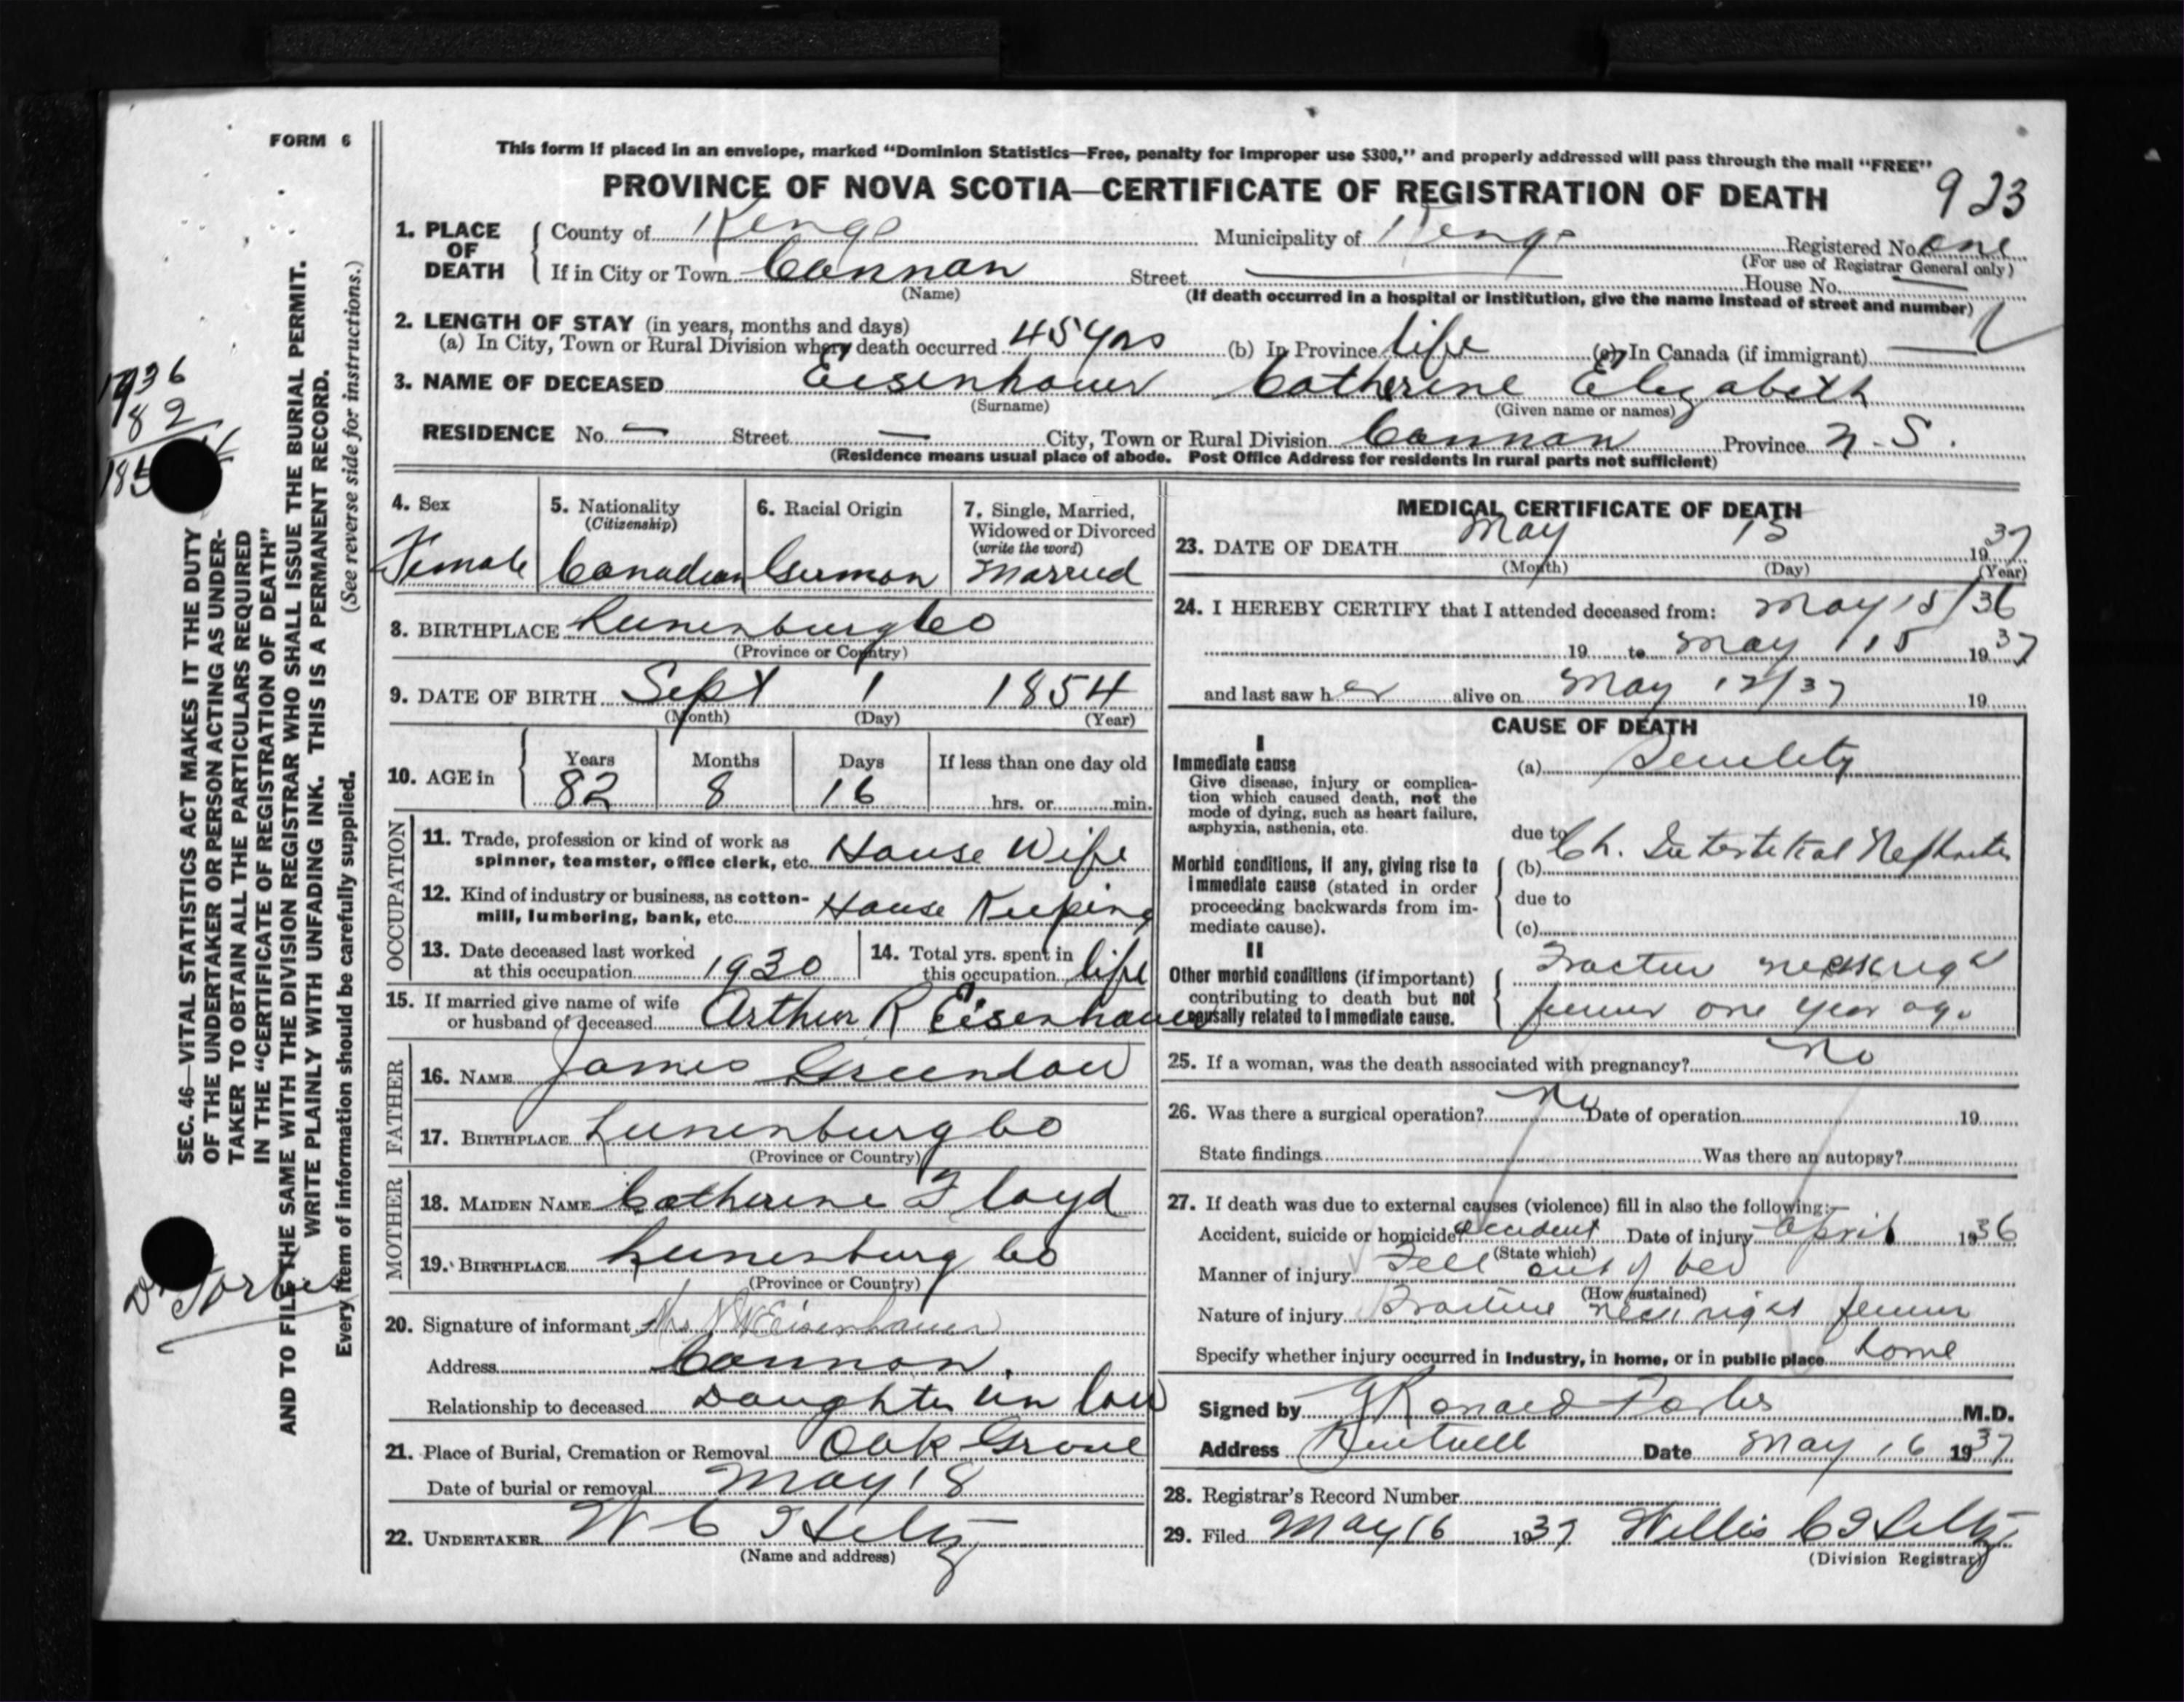 FORM 6
This form if placed in an envelope, marked “Dominion Statistics—Free, penalty for improper use $300,” and properly addressed will pass through the mail “FREE”
PROVINCE OF NOVA SCOTIA—CERTIFICATE OF REGISTRATION OF DEATH
923
1. PLACE OF DEATH
County of Kings Municipality of Kings Registered No. one
(For use of Registrar General only)
If in City or Town Cannan Street House No.
(Name)
(If death occurred in a hospital or institution, give the name instead of street and number)
2. LENGTH OF STAY (in years, months and days)
(a) In City, Town or Rural Division where death occurred 45 yrs (b) In Province life (c) In Canada (if immigrant)
3. NAME OF DECEASED Eisenhauer Catherine Elizabeth
(Surname) (Given name or names)
RESIDENCE No. — Street — City, Town or Rural Division Cannan Province N.S.
(Residence means usual place of abode. Post Office Address for residents in rural parts not sufficient)
4. Sex
Female
5. Nationality
(Citizenship)
Canadian
6. Racial Origin
German
7. Single, Married,
Widowed or Divorced
(write the word)
Married
8. BIRTHPLACE Lunenburg Co
(Province or Country)
9. DATE OF BIRTH Sept 1 1854
(Month) (Day) (Year)
10. AGE in
Years Months Days If less than one day old
82 8 16 hrs. or min.
OCCUPATION
11. Trade, profession or kind of work as
spinner, teamster, office clerk, etc. House Wife
12. Kind of industry or business, as cotton-
mill, lumbering, bank, etc. House Keeping
13. Date deceased last worked
at this occupation 1930
14. Total yrs. spent in
this occupation life
15. If married give name of wife
or husband of deceased Arthur R Eisenhauer
FATHER
16. NAME James Greenlaw
17. BIRTHPLACE Lunenburg Co
(Province or Country)
MOTHER
18. MAIDEN NAME Catherine Floyd
19. BIRTHPLACE Lunenburg Co
(Province or Country)
20. Signature of informant Mrs Eisenhauer
Address Cannan.
Relationship to deceased Daughter in law
21. Place of Burial, Cremation or Removal Oak Grove
Date of burial or removal May 18
22. UNDERTAKER W C
(Name and address)
MEDICAL CERTIFICATE OF DEATH
23. DATE OF DEATH May 15 1937
(Month) (Day) (Year)
24. I HEREBY CERTIFY that I attended deceased from: May 15/36
19 to May 15 1937
and last saw her alive on May 12/37 19
CAUSE OF DEATH
I
Immediate cause
Give disease, injury or complica-
tion which caused death, not the
mode of dying, such as heart failure,
asphyxia, asthenia, etc.
(a) Senility
due to
Morbid conditions, if any, giving rise to
immediate cause (stated in order
proceeding backwards from im-
mediate cause).
(b) Ch. Interstitial Nephritis
due to
(c)
II
Other morbid conditions (if important)
contributing to death but not
causally related to immediate cause.
Fracture neck right
femur one year ago
25. If a woman, was the death associated with pregnancy? No
26. Was there a surgical operation? No Date of operation 19
State findings Was there an autopsy?
27. If death was due to external causes (violence) fill in also the following:—
Accident, suicide or homicide accident Date of injury April 1936
(State which)
Manner of injury Fell out of bed
(How sustained)
Nature of injury Fracture neck right femur
Specify whether injury occurred in Industry, in home, or in public place home
Signed by Ronald Forbes M.D.
Address Kentville Date May 16 1937
28. Registrar's Record Number
29. Filed May 16 1937 Willis C
(Division Registrar)
SEC. 46—VITAL STATISTICS ACT MAKES IT THE DUTY
OF THE UNDERTAKER OR PERSON ACTING AS UNDER-
TAKER TO OBTAIN ALL THE PARTICULARS REQUIRED
IN THE “CERTIFICATE OF REGISTRATION OF DEATH”
AND TO FILE THE SAME WITH THE DIVISION REGISTRAR WHO SHALL ISSUE THE BURIAL PERMIT.
WRITE PLAINLY WITH UNFADING INK. THIS IS A PERMANENT RECORD.
Every item of information should be carefully supplied. (See reverse side for instructions.)
1936
82
Dr Forbes